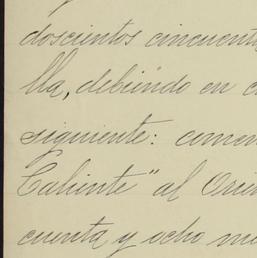 doscientos cincuenta
lla, debiendo en c
siguiente: comen
Caliente" al Orien
cuenta y ocho me